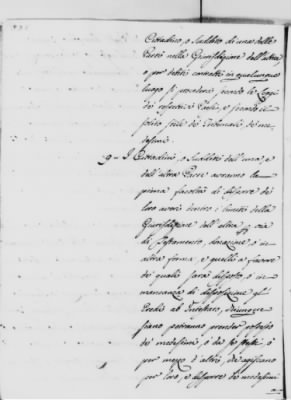 Cittadino, o Suddito di una delle
Parti nella Giurisdizione dell'altra
o per debiti contratti in qualunque
luogo si procederà secondo le Leggi
dei rispettivi Paesi, e secondo il
solito stile dei Tribunali dei me-
desimi.
9 I Cittadini, o Sudditi dell'una, e
dell'altra Parte avranno la
piena facoltà di disporre dei
loro averi dentro i limiti della
Giurisdizione dell'altra, sia
di Testamento, donazione o in
altra forma, e quelli a favore
dei quali sarà disposto, o in
mancanza di disposizione gl'
Eredi ab Intestato, dovunque
siano potranno prender possesso
dei medesimi, o da se stessi o
per mezzo d'altri, che agiscano
per loro, e disporre dei medesimi